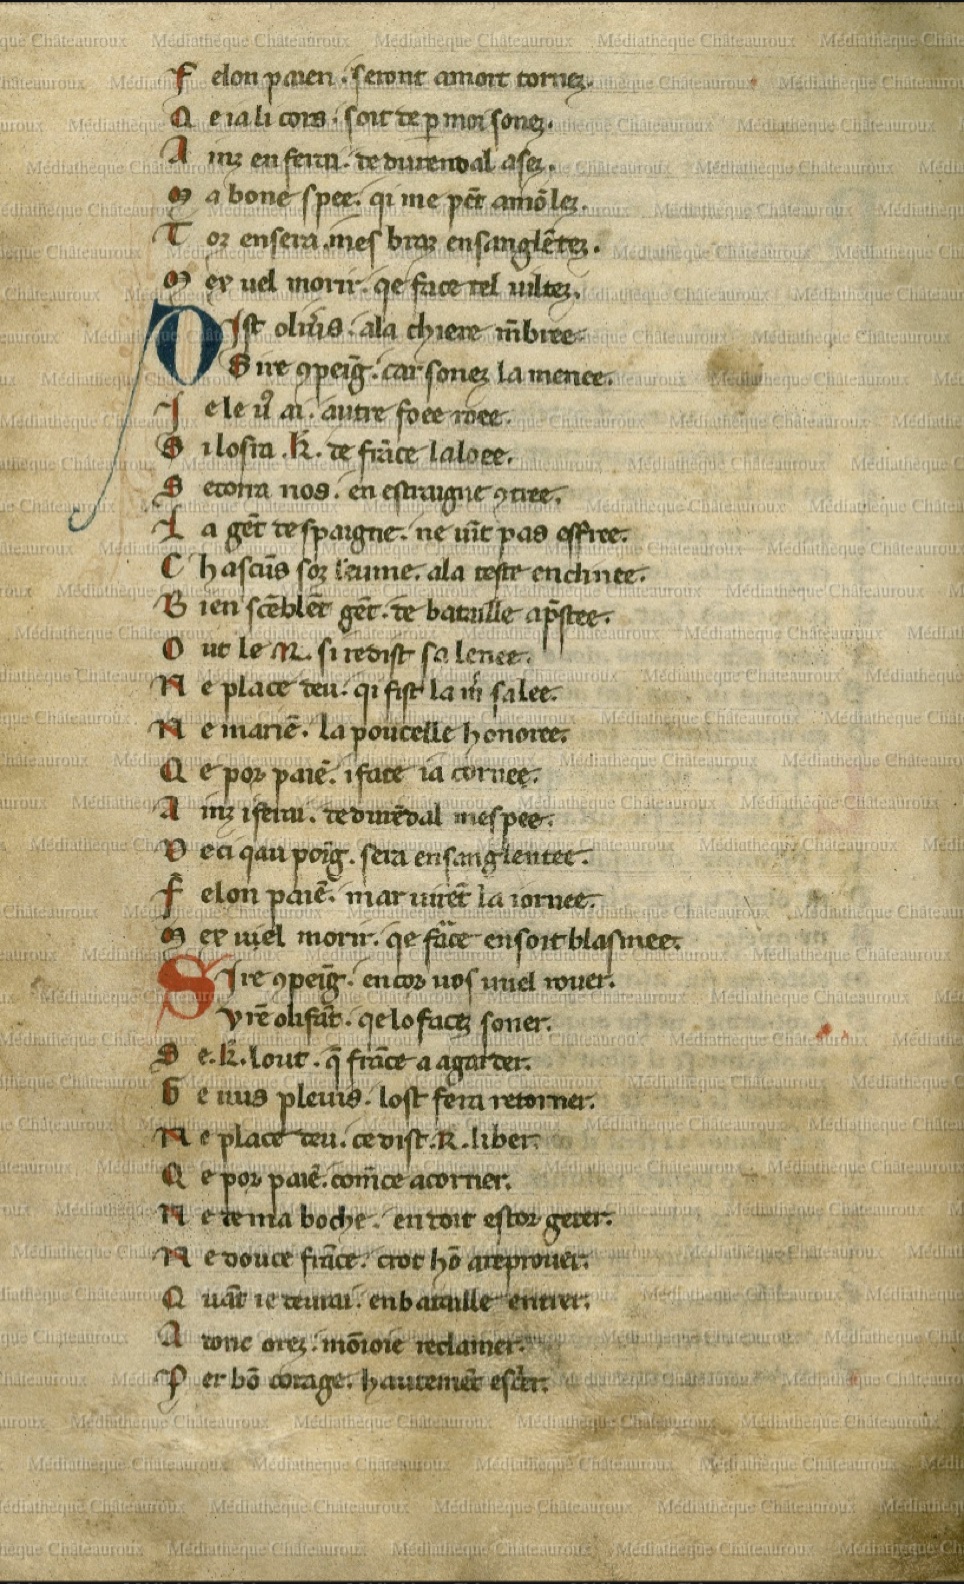 F elon paien . seront amort tornez.
Q e ia li cors . soit de p moi sonez.
A inz en ferrai . de durendal asez.
M a bone spee . qi me pẽt amõ lez.
T oz en sera . mes braz ensanglẽtez.
M ex uel morir . qe face tel uiltez.
D Ist oliũs . ala chiere mẽbree
S ire ꝯpeig̃ . car sonez la menee.
I e le uꝰ ai . autre foee roee.
S i lo sra .K̃. de frãce la loee.
S ecorra nos . en estraigne ꝯtree.
L a gẽt de spaigne . ne uĩt pas effree.
C hascũs soz leume . ala teste enclinee.
B ien scẽblẽt gẽt . de bataille ap̃stee.
O ut le .R. si redist sa lenee.
N e place deu . qi fist la m̃ salee.
N e mariẽ . la poucelle honoree.
Q e por paiẽ . i face ia cornee.
A inz i ferrai . de durẽdal mespee.
D eci qau poig̃ . sera ensanglentee.
F elon paiẽ . mar uirẽt la iornee.
M ex uiel morir . qe frãce en soit blasmee.
S Ire ꝯpeig̃ . encor uos uuel rouer.
Vr̃e olifãt . qe lo facez soner.
S e .K̃. lout . q̃ frãce a agarder.
G e uus pleuis . lost fera retorner.
N e place deu . ce dist .R. li ber.
Q e por paiẽ . com̃ce acorner.
N e de ma boche . en doit estor geter.
N e douce frãce . crot hõ areprouer.
Q uãt ie deurai . en bataille entrer.
A donc orez . mõioie reclamer.
P er bõ corage . hautemẽt escrier.